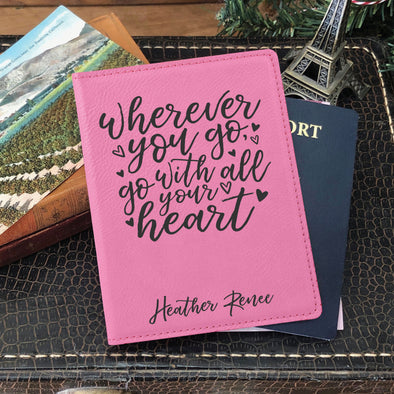 Wherever
you go,
go with all
your
heart
Heather Renee
PORT